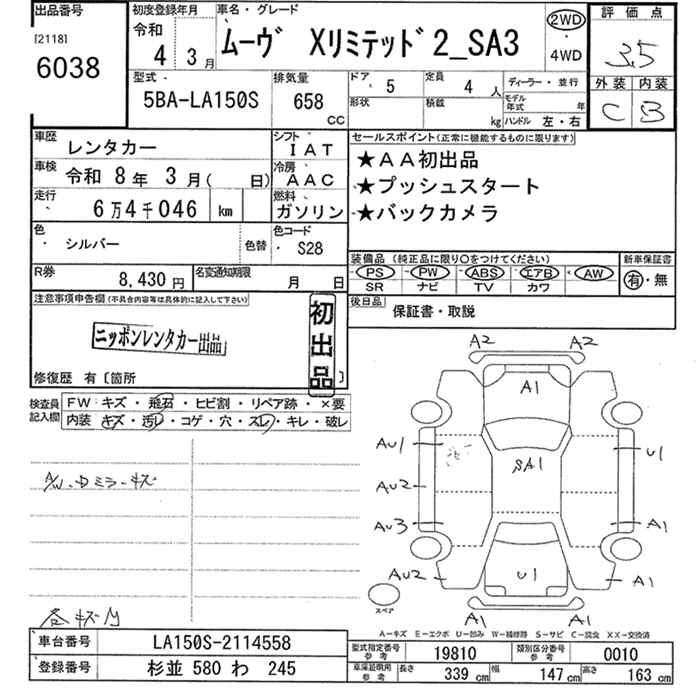 出品番号
[2118]
6038
初度登録年月
令和
4 3月
車名・グレード
ムーヴ Xリミテッド2_SA3
2WD
・
4WD
評価点
3.5
外装 内装
C B
型式
5BA-LA150S
排気量
658
CC
ドア 5
定員 4 人
ディーラー・並行
形状
積載
kg
モデル年式 年
ハンドル 左・右
車歴
レンタカー
シフト
IAT
車検
令和 8年 3月( 日)
冷房
AAC
走行
6万4千046 km
燃料
ガソリン
セールスポイント(正常に機能するものに限ります)
★AA初出品
★プッシュスタート
★バックカメラ
色
シルバー
色替
色コード
S28
装備品(純正品に限り○をつけてください)
PS PW ABS エアB AW
SR ナビ TV カワ
新車保証書
有・無
R券
8,430円
名変通知期限
月 日
後日品
保証書・取説
注意事項申告欄(不具合内容等は具体的に記入して下さい)
ニッポンレンタカー出品
初出品
修復歴 有〔箇所 〕
検査員
記入欄
FW キズ・飛石・ヒビ割・リペア跡・×要
内装 キズ・汚レ・コゲ・穴・スレ・キレ・破レ
A2 A2
A1
AU1
U1
SA1
AU2
AU3
A1
AU2
U1
A1
A1 A1
スペア
ミラーキズ
各キズ凹
A-キズ E-エクボ U-凹み W-補修跡 S-サビ C-腐食 XX-交換済
車台番号
LA150S-2114558
登録番号
杉並 580 わ 245
型式指定番号
参考
19810
類別区分番号
参考
0010
車庫証明用
参考
長さ 339 cm
幅 147 cm
高さ 163 cm